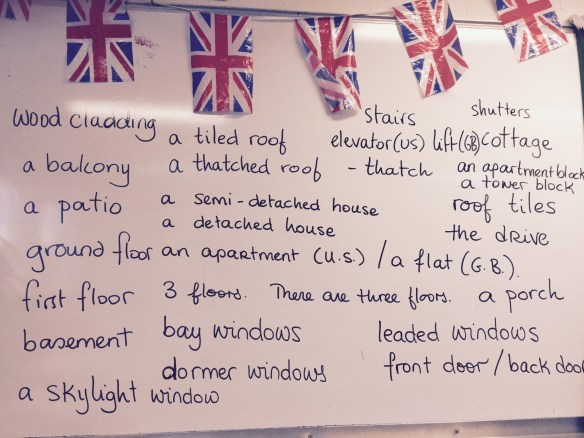 stairs shutters
wood cladding a tiled roof elevator (US) lift (GB) cottage
a balcony a thatched roof - thatch an apartment block
a tower block
a patio a semi-detached house roof tiles
a detached house the drive
ground floor an apartment (U.S.) / a flat (G.B.).
first floor 3 floors. There are three floors. a porch
basement bay windows leaded windows
dormer windows front door / back door
a skylight window